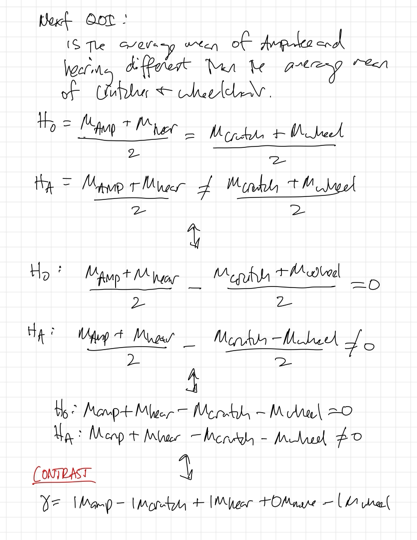 Next QOI:
is the average mean of Amputee and
hearing different than the average mean
of crutches + wheelchair.
H₀ = (M_Amp + M_hear)/2 = (M_crutch + M_wheel)/2
H_A = (M_Amp + M_hear)/2 ≠ (M_crutch + M_wheel)/2
↕
H₀: (M_Amp + M_hear)/2 − (M_crutch + M_wheel)/2 = 0
H_A: (M_Amp + M_hear)/2 − (M_crutch − M_wheel)/2 ≠ 0
↕
H₀: M_amp + M_hear − M_crutch − M_wheel = 0
H_A: M_amp + M_hear − M_crutch − M_wheel ≠ 0
↕
CONTRAST
γ = 1M_amp − 1M_crutch + 1M_hear + 0M_none − 1M_wheel